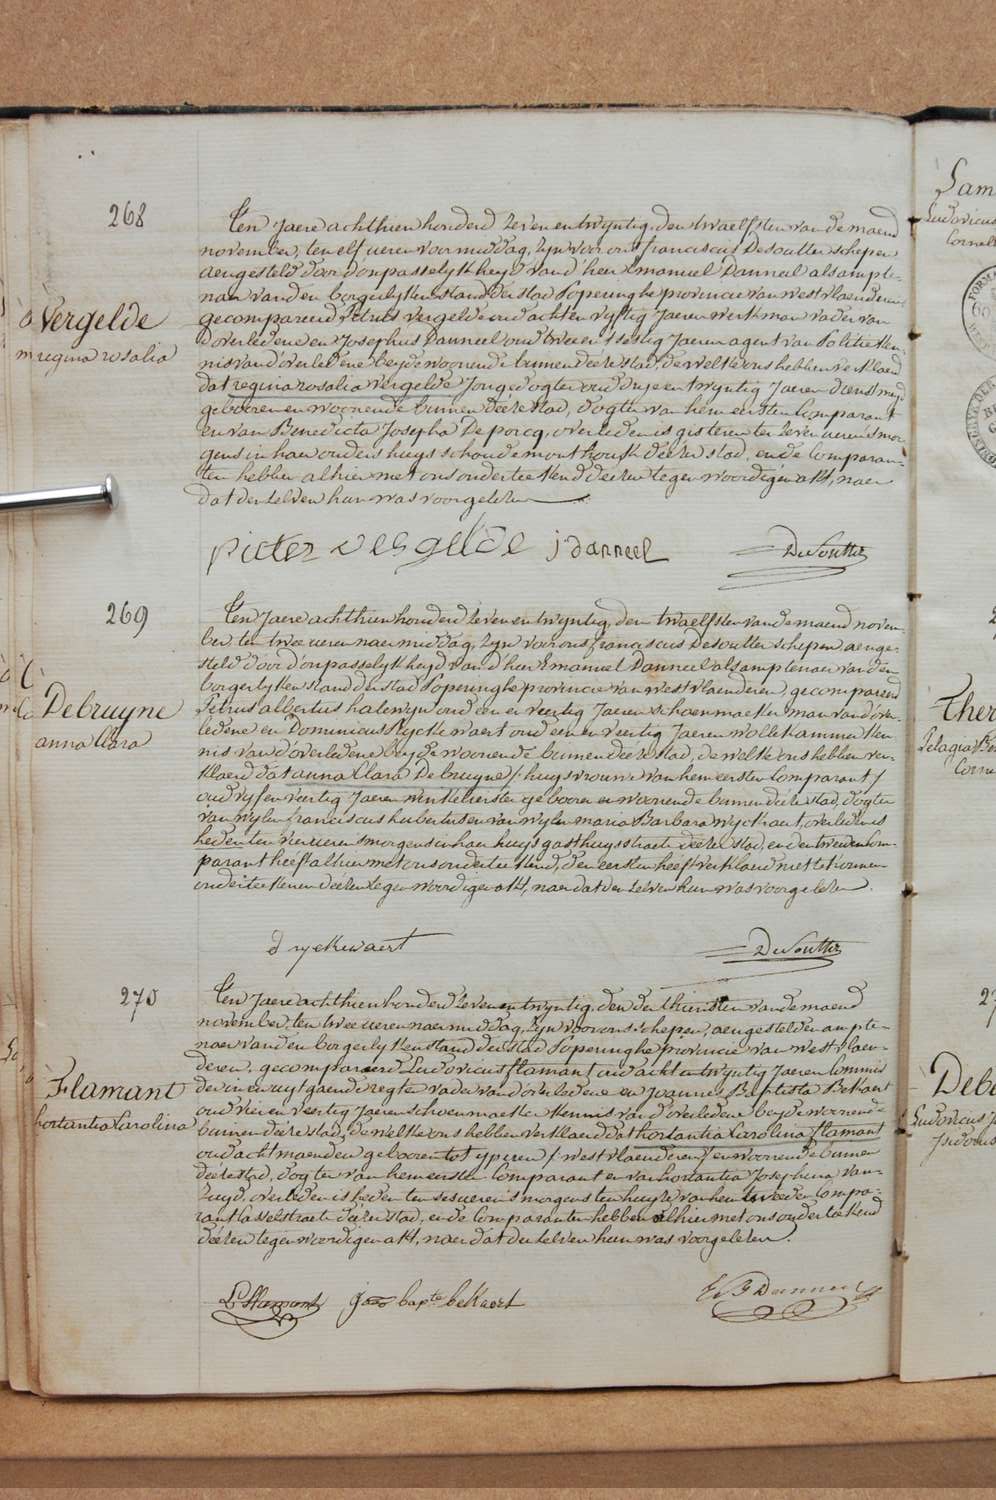 268
Vergelde
regina rosalia
Ten Jaere achthien honderd zeven en twyntig, den twaelfsten van de maend
november, ten elf ueren voormiddag, zyn voor ons franciscus Desoutter schepen
aengesteld door d'onpasselykheyd van d'heer Emanuel Danneel als ampte-
naer van den borgerlyken stand der stad Poperinghe provincie van westvlaenderen
gecompareerd petrus vergelde oud acht en vyftig Jaeren werkman vader van
d'overledene en Josephus Danneel oud twee en sestig Jaeren agent van Politie ken-
nis van d'overledene beyde woonende binnen deéze stad, dewelke ons hebben verklaerd
dat regina rosalia vergelde Jonge dogter oud drye en twyntig Jaeren dienstmeyd
gebooren en woonende binnen deéze stad, dogter van hem eersten Comparant
en van Benedicta Josepha De porcq, overleden is gisteren ten zeven ueren 's mor-
gens in haer ouders huys schoudemonthouk deézer stad, en de Comparan-
ten hebben alhier met ons onderteekend deézen tegenwoordigen akt, naer
dat der zelven hun was voorgelezen
pieter vergelde j danneel DeSoutter
269
Debruyne
anna Clara
Ten Jaere achthien honderd zeven en twyntig, den twaelfsten van de maend novem-
ber, ten twee ueren naermiddag, zyn voor ons franciscus Desoutter schepen aenge-
steld door d'onpasselykheyd van d'heer Emanuel Danneel als amptenaer van den
borgerlyken stand der stad Poperinghe provincie van westvlaenderen, gecompareerd
Petrus albertus halewyn oud een en veertig Jaeren schoenmaeker man van d'over-
ledene en Dominicus Ryckewaert oud een en veertig Jaeren wollekammer ken-
nis van d'overledene beyde woonende binnen deéze stad, dewelke ons hebben ver-
klaerd dat anna Clara Debruyne / huysvrouw van hem eersten Comparant /
oud vyf en veertig Jaeren winkelierster gebooren en woonende binnen deéze stad, dogter
van wylen franciscus hubertus en van wylen maria Barbara wyckaert, overleden is
heden ten vier ueren 's morgens in haer huys gasthuysstraete deézer stad, en den tweeden Com-
parant heeft alhier met ons onderteekend, den eersten heeft verklaerd niet te konnen
onderteekenen deézen tegenwoordigen akt, naer dat der zelven hun was voorgelezen.
d ryckewaert DeSoutter
270
Flamant
hortantia Carolina
Ten Jaere achthien honderd zeven en twyntig, den derthiensten van de maend
november, ten twee ueren naermiddag, zyn voor ons schepen, aengestelden ampte-
naer van den borgerlyken stand der stad Poperinghe provincie van westvlaen-
deren, gecompareerd Ludovicus flamant oud acht en twyntig Jaeren Commis
der in en uytgaende regten vader van d'overledene en Joannes Baptista Bekaert
oud vier en veertig Jaeren schoenmaeker kennis van d'overledene beyde woonende
binnen deéze stad, dewelke ons hebben verklaerd dat hortantia Carolina flamant
oud acht maenden gebooren tot yperen / westvlaenderen / en woonende binnen
deéze stad, dogter van hem eersten Comparant en van hortantia Josephina van-
zuyd, overleden is heden ten ses ueren 's morgens ten huyze van hem tweeden Compa-
rant Casselstraete deézer stad, en de Comparanten hebben alhier met ons onderteekend
deézen tegenwoordigen akt, naer dat der zelven hun was voorgelezen.
L Flamant Joes bapte beKaert E F Danneel